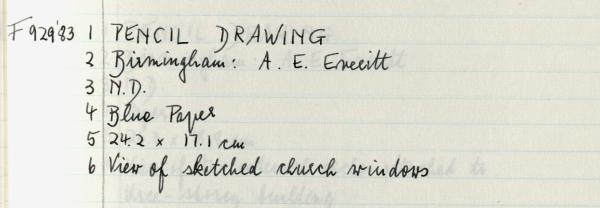 F929'83 1 PENCIL DRAWING
2 Birmingham: A. E. Everitt
3 N.D.
4 Blue Paper
5 24.2 x 17.1 cm
6 View of sketched church windows